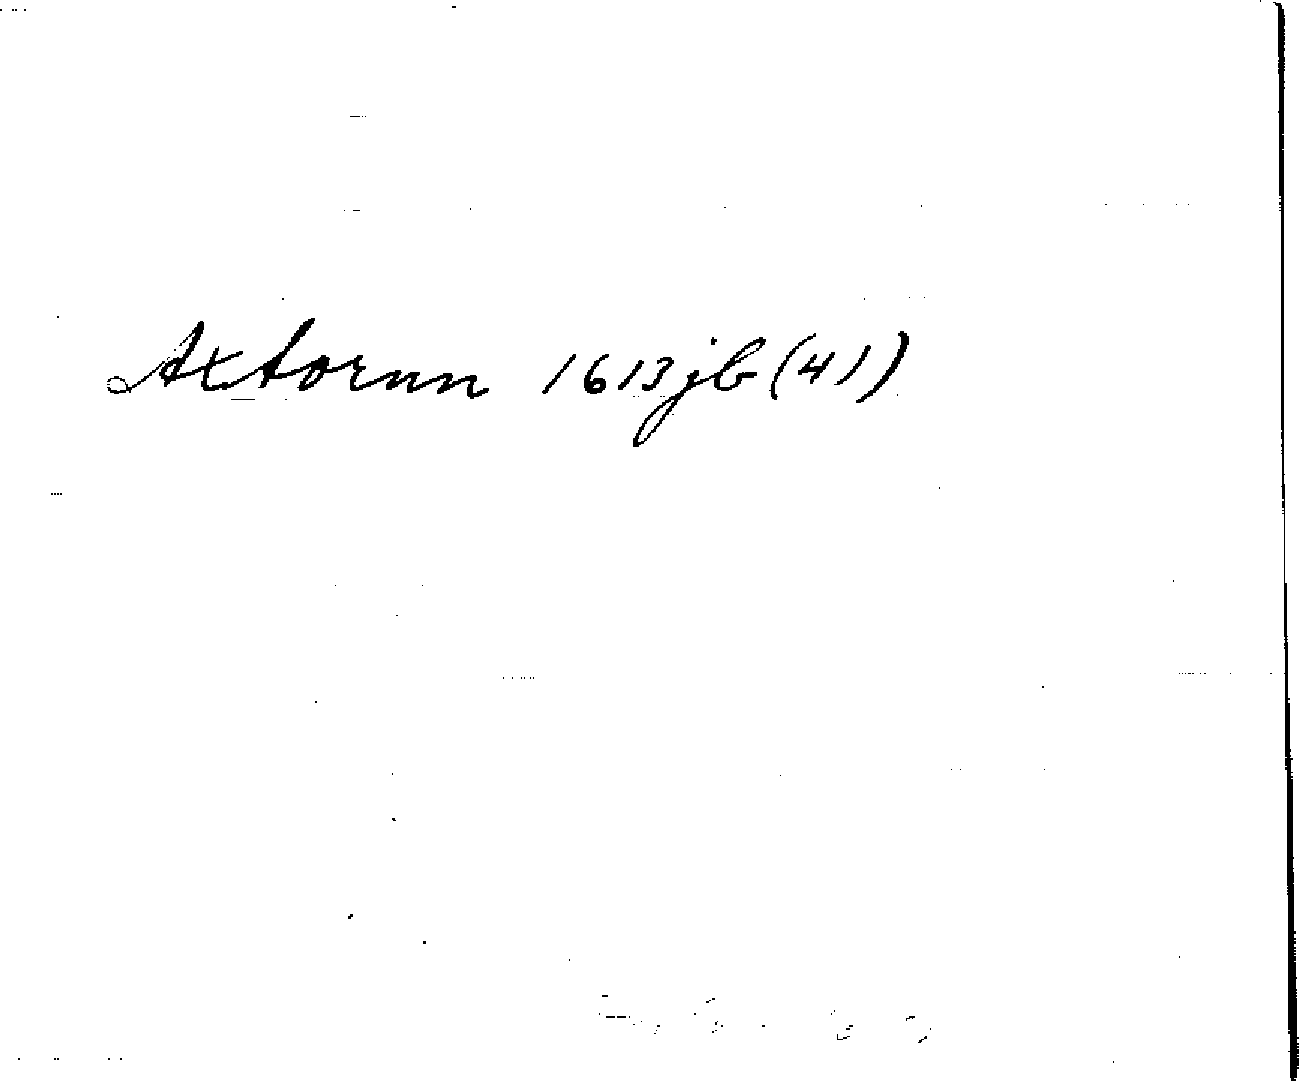 Axtornn 1613 jb (41)